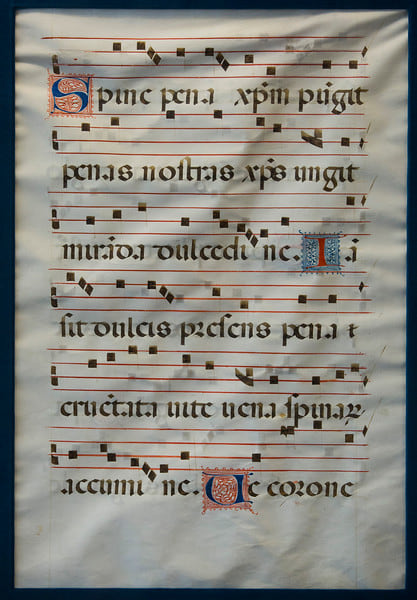 Spine pena xp̃m pũgit
penas nostras xp̃s ungit
mirãda dulcedi ne. I ã
sit dulcis presens pena t
cruc̃tata uite uena spinaꝝ
accumi ne. Ue corone